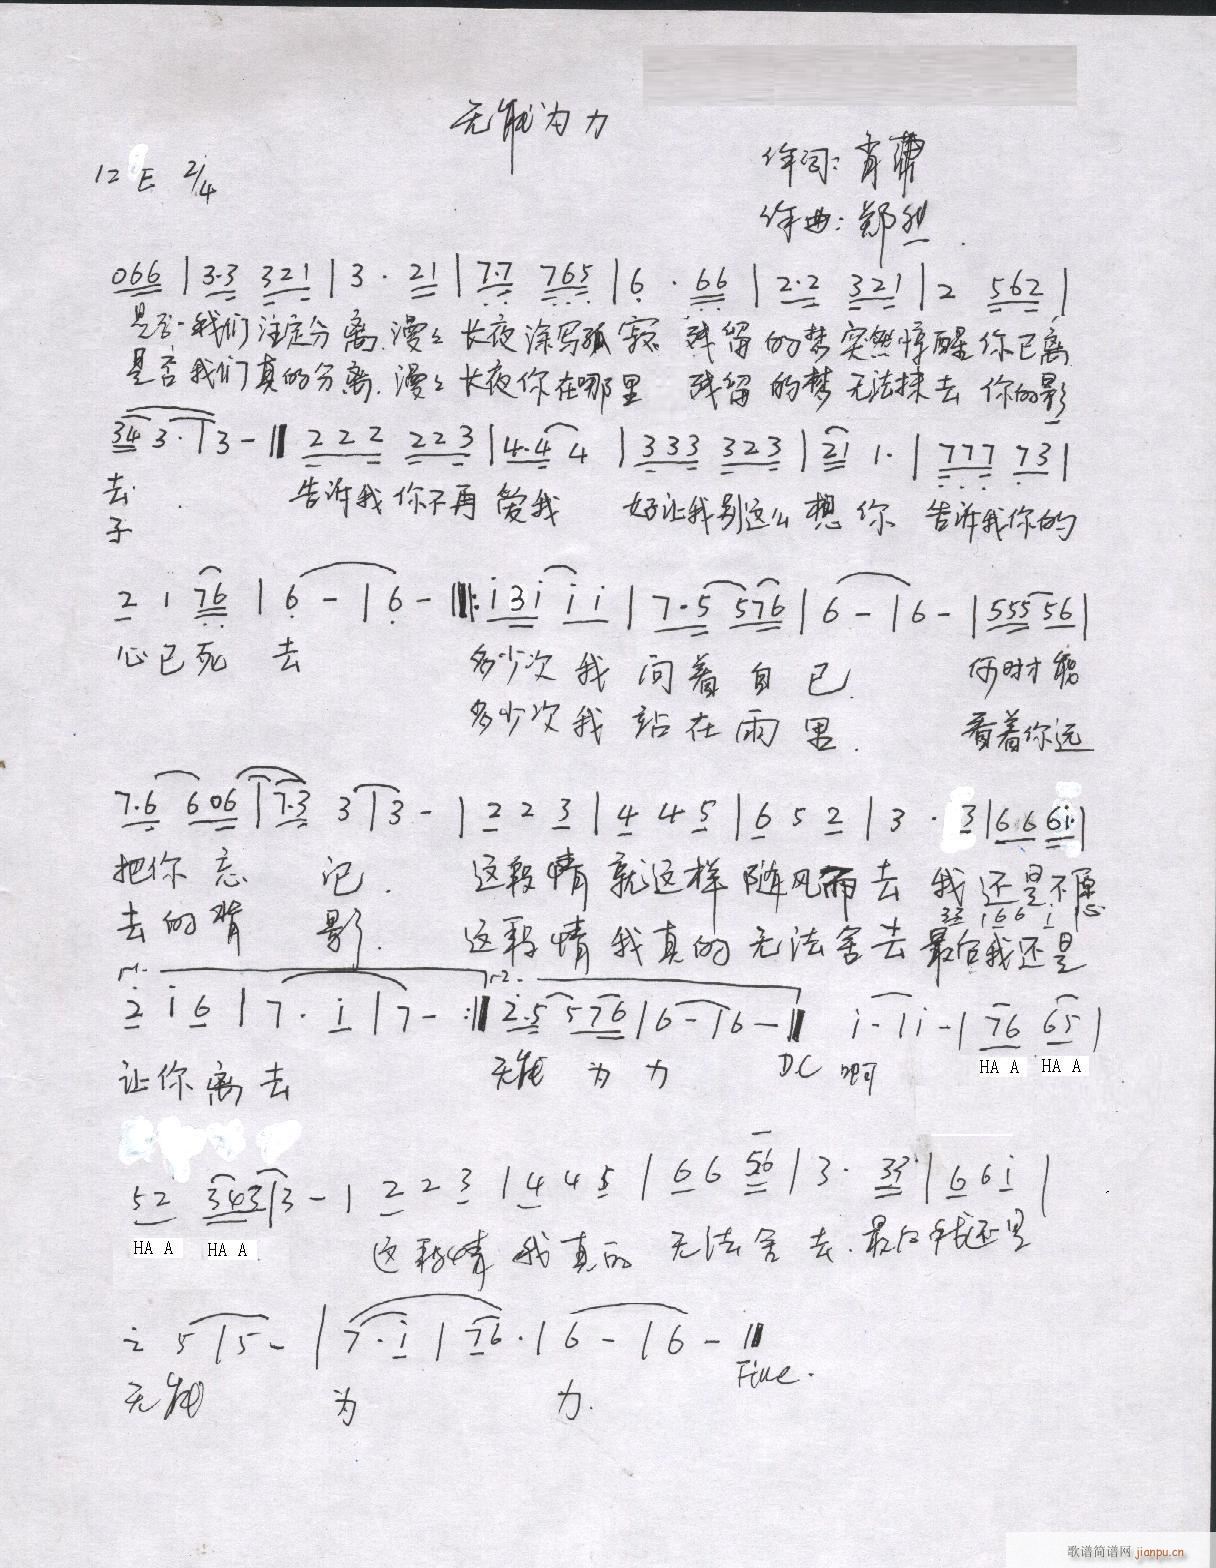 无能为力
1=E 2/4
作词: 肖
作曲: 郑
066 | 3·3 321 | 3 · 21 | 7·7 765 | 6 · 66 | 2·2 321 | 2 562 |
是否我们注定分离 漫漫长夜涂写孤寂 残留的梦突然惊醒你已离
是否我们真的分离 漫漫长夜你在哪里 残留的梦无法抹去 你的影
343· | 3 - || 222 223 | 4·4 4 | 333 323 | 21 1· | 777 73 |
去 告诉我你不再爱我 好让我别这么想你 告诉我你的
子
2 1 76 | 6 - | 6 - ||: i3i i i | 7·5 576 | 6 - | 6 - | 555 56 |
心已死去 多少次我问着自己 何时才能
多少次我站在雨里 看着你远
7·6 606 | 7·3 3 | 3 - | 2 2 3 | 4 4 5 | 6 5 2 | 3 · 3 | 66 6i· |
把你忘记 这段情就这样随风而去 我还是不愿
33 166 i
去的背影 这段情我真的无法舍去 最后我还是
1. 2.
2 i 6 | 7 · i | 7 - :|| 2·5 576 | 6 - | 6 - || i - | i - | 76 65 |
让你离去 无能为力 D.C 啊 HA A HA A
52 343 | 3 - | 2 2 3 | 4 4 5 | 6 6 56 | 3· 33 | 6 6 i |
HA A HA A 这段情我真的无法舍去 最后我还是
i 5 | 5 - | 7 · i | 76 · | 6 - | 6 - ||
无能为力 Fine.
歌谱简谱网 jianpu.cn